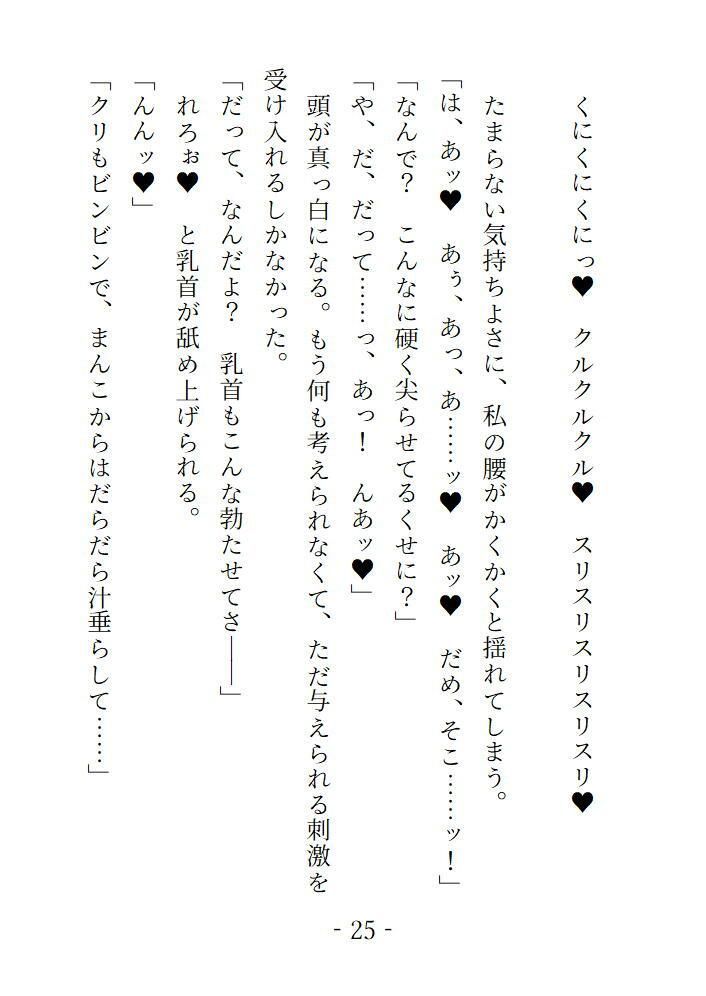 くにくにくにっ♥　クルクルクル♥　スリスリスリスリスリ♥
たまらない気持ちよさに、私の腰がかくかくと揺れてしまう。
「は、あッ♥　あぅ、あっ、あ……ッ♥　あッ♥　だめ、そこ……ッ！」
「なんで？　こんなに硬く尖らせてるくせに？」
「や、だ、だって……っ、あっ！　んあッ♥」
頭が真っ白になる。もう何も考えられなくて、ただ与えられる刺激を
受け入れるしかなかった。
「だって、なんだよ？　乳首もこんな勃たせてさ――」
れろぉ♥　と乳首が舐め上げられる。
「んんッ♥」
「クリもビンビンで、まんこからはだらだら汁垂らして……」
- 25 -